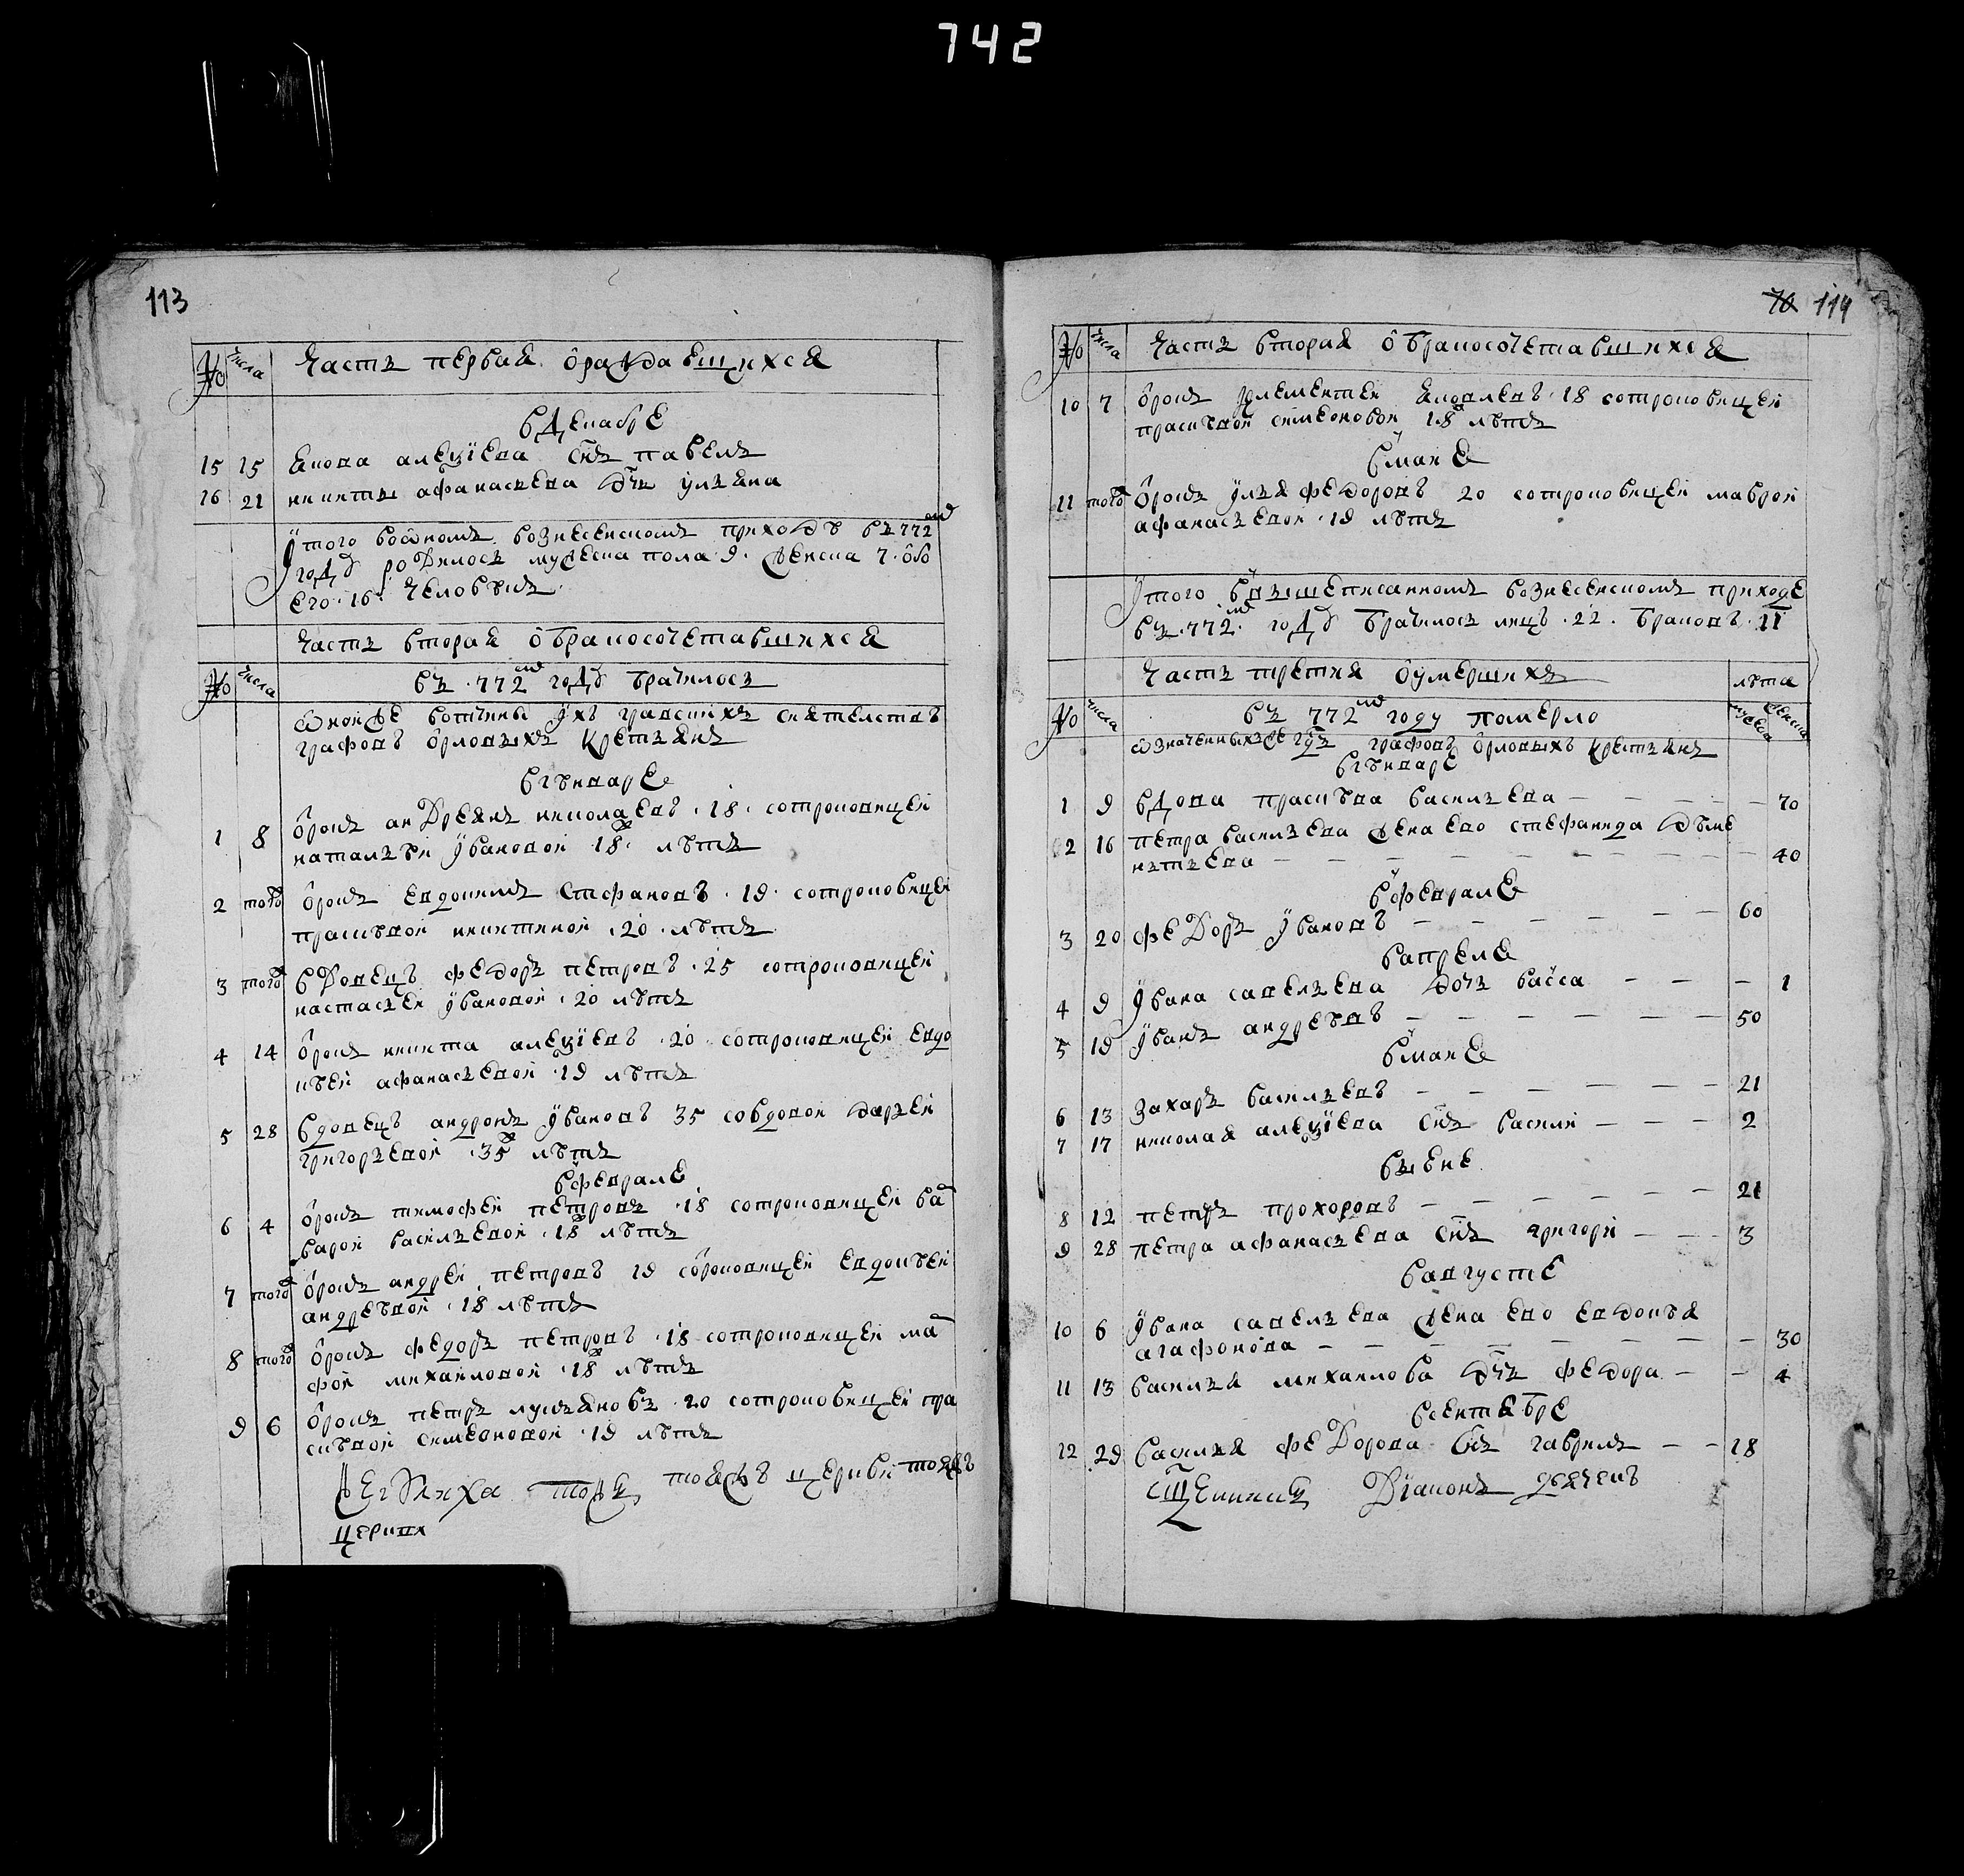 742
113
№ числа Часть первая о раждаещихся
в декабре
15 15 якова алеѯiева снъ павелъ
16 21 никиты афанасьева дчь ульяна
Итого во оном вознесенском приходѣ въ 772м
году родилось мужеска пола 9 женска 7 обо
его 16 человѣкъ
Часть вторая о бракосочетавшихся
№ числа въ 772м году брачилось
оной же вотчины их графских сиятелствъ
графовъ орловыхъ крестьянъ
в генваре
1 8 отрокъ андреянъ николаевъ 18 с отроковицеи
натальеи ивановои 18 лѣтъ
2 того отрокъ евдокимъ стефановъ 19 с отроковицеи
прасковои никитинои 20 лѣтъ
3 того вдовецъ федоръ петровъ 25 с отроковицеи
настасьеи ивановои 20 лѣтъ
4 14 отрокъ никита алеѯiевъ 20 с отроковицеи евдо
кѣеи афанасьевои 19 лѣтъ
5 28 вдовецъ андронъ ивановъ 35 со вдовои дарьеи
григорьевои 35 лѣтъ
в феврале
6 4 отрокъ тимофеи петровъ 18 с отроковицеи ва
варои васильевои 18 лѣтъ
7 того отрокъ андреи петровъ 19 с отроковицеи евдокѣеи
андрѣевои 18 лѣтъ
8 того отрокъ федоръ петровъ 18 с отроковицеи ма
фои михаиловои 18 лѣтъ
9 6 отрокъ петръ лукьяновъ 20 с отроковицеи пра
сковои симеоновои 19 лѣтъ
церкви
70 114
№ числа Часть вторая о бракосочетавшихся
10 7 отрокъ клементеи яковлевъ 18 с отроковицеи
прасковои симеоновои 18 лѣтъ
в мае
11 того отрокъ илья федоровъ 20 с отроковицеи маврои
афанасьевои 19 лѣтъ
Итого в вышеписанномъ вознесенскомъ приходе
въ 772м году брачилось лицъ 22 браковъ 11
Часть третия о умершихъ лѣта
№ числа въ 772м году померло мужеска женска
означенныхъ же гдъ графовъ орловыхъ крестьянъ
в генваре
1 9 вдова прасковя васильева — 70
2 16 петра васильева жена ево стефанида дѣме
нтьева — 40
в феврале
3 20 федоръ ивановъ — 60
в апреле
4 9 ивана савельева дочь васса — 1
5 19 иванъ андрѣевъ — 50
в мае
6 13 захаръ васильевъ — 21
7 17 николая алеѯiева снъ василеи — 2
в ыене
8 12 петръ прохоровъ — 21
9 28 петра афанасьева снъ григори — 3
в августе
10 6 ивана савельева жена ево евдокѣя
агафонова — 30
11 13 василья михаилова дчь федора — 4
в сентябре
12 29 василья федорова снъ гаврила — 18